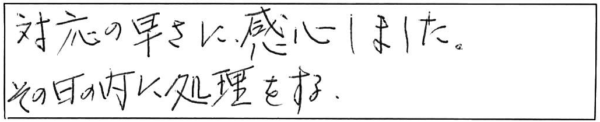 対応の早さに、感心しました。
その日の内に処理をする.